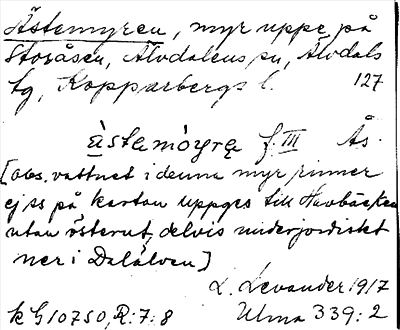 Ästemyren, myr uppe på
Storåsen, Älvdalens sn, Älvdals
tg, Kopparbergs l. 127
àstamòyrę f. III Ås.
[obs. vattnet i denna myr rinner
ej ss på kartan uppges till Havbäcken
utan österut, delvis underjordiskt
ner i Dalälven]
L. Levander 1917
k G10750, R:7:8 Ulma 339:2